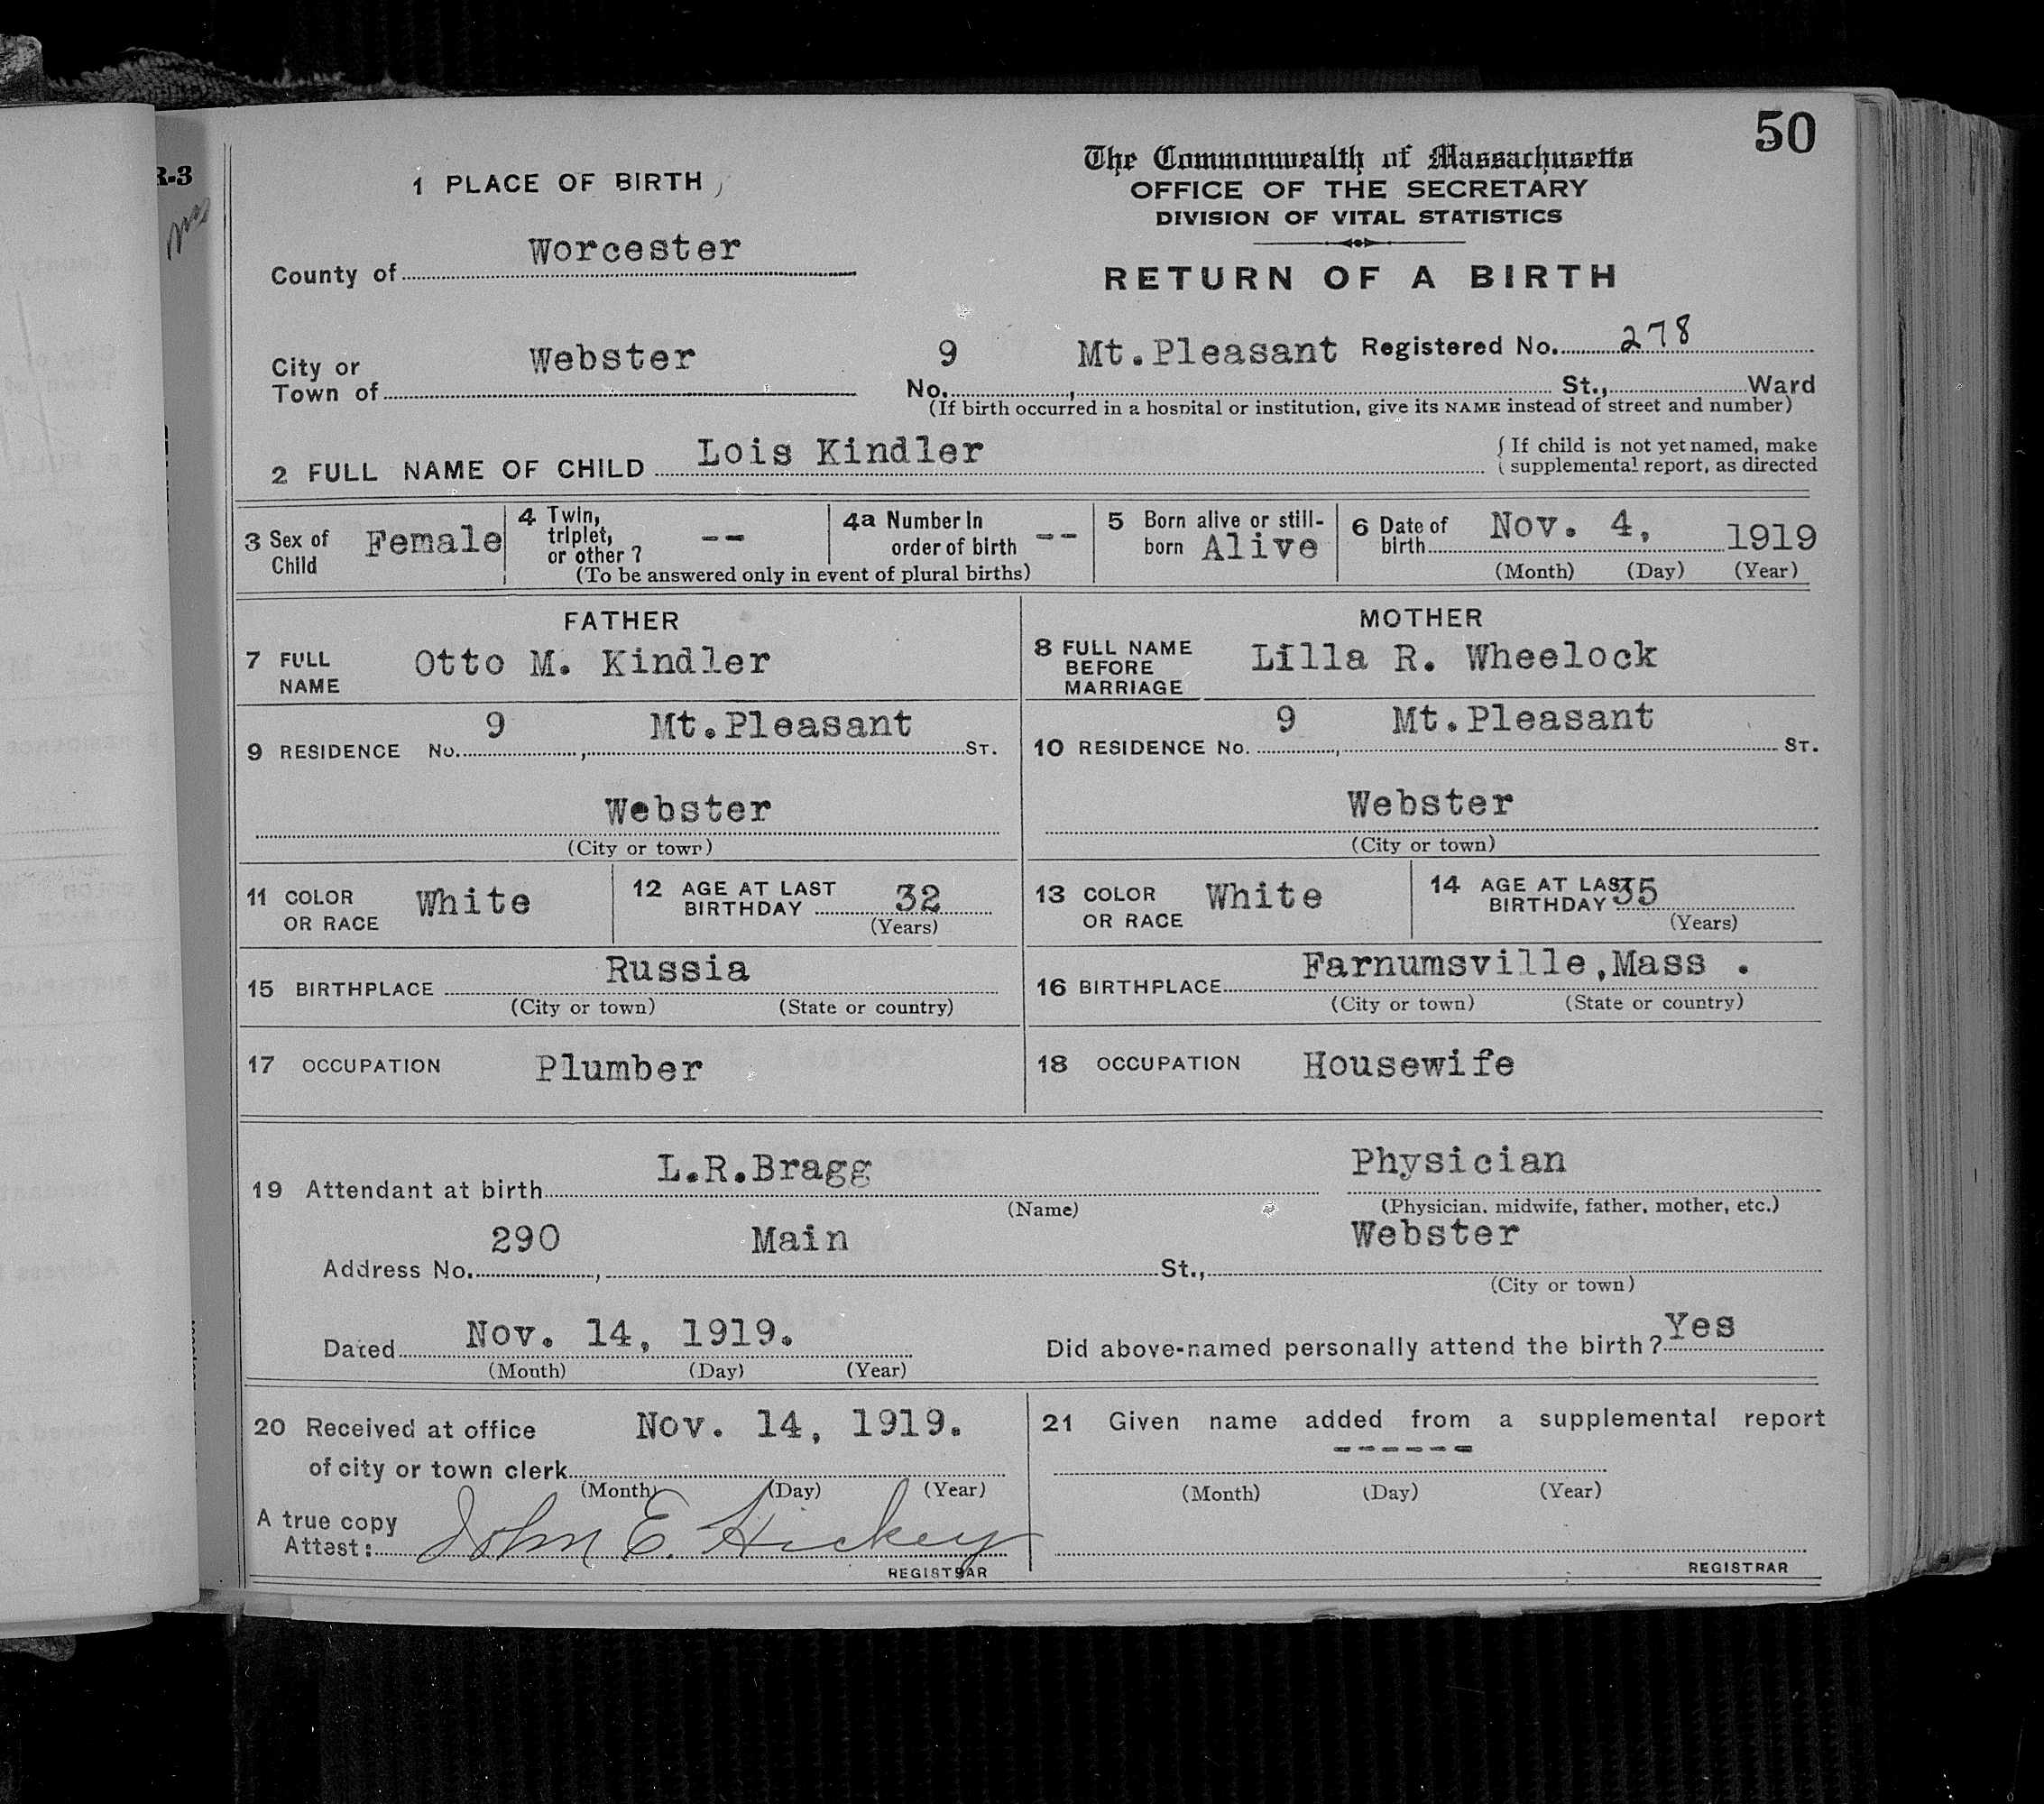 50
R-3
The Commonwealth of Massachusetts
OFFICE OF THE SECRETARY
DIVISION OF VITAL STATISTICS
RETURN OF A BIRTH
1 PLACE OF BIRTH
County of Worcester
City or Town of Webster
No. 9, Mt.Pleasant St., Ward
Registered No. 278
(If birth occurred in a hospital or institution, give its NAME instead of street and number)
2 FULL NAME OF CHILD Lois Kindler
{If child is not yet named, make
supplemental report, as directed
3 Sex of Child Female
4 Twin, triplet, or other? --
4a Number in order of birth --
(To be answered only in event of plural births)
5 Born alive or still-born Alive
6 Date of birth Nov. 4, 1919
(Month) (Day) (Year)
FATHER
7 FULL NAME Otto M. Kindler
MOTHER
8 FULL NAME BEFORE MARRIAGE Lilla R. Wheelock
9 RESIDENCE No. 9, Mt.Pleasant ST.
Webster
(City or town)
10 RESIDENCE No. 9, Mt.Pleasant ST.
Webster
(City or town)
11 COLOR OR RACE White
12 AGE AT LAST BIRTHDAY 32
(Years)
13 COLOR OR RACE White
14 AGE AT LAST BIRTHDAY 35
(Years)
15 BIRTHPLACE Russia
(City or town) (State or country)
16 BIRTHPLACE Farnumsville,Mass .
(City or town) (State or country)
17 OCCUPATION Plumber
18 OCCUPATION Housewife
19 Attendant at birth L.R.Bragg Physician
(Name) (Physician, midwife, father, mother, etc.)
Address No. 290, Main St., Webster
(City or town)
Dated Nov. 14, 1919.
(Month) (Day) (Year)
Did above-named personally attend the birth? Yes
20 Received at office
of city or town clerk Nov. 14, 1919.
(Month) (Day) (Year)
21 Given name added from a supplemental report
------
(Month) (Day) (Year)
A true copy
Attest: John E. Hickey
REGISTRAR
REGISTRAR